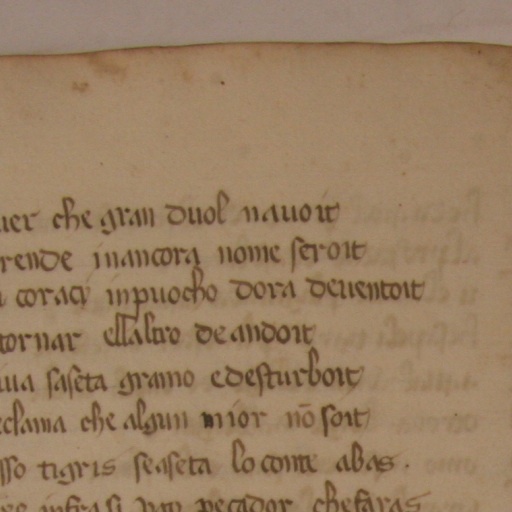 uer che gran duol nauoit
rende inancora nome seroit
coracy inpuocho dora deuentoit
tornar ellaltro de andoit
iua saseta gramo edesturboit
eclama che algun mior nō soit
sso tigris seaseta lo conte abas.
infra si pecador chefaras